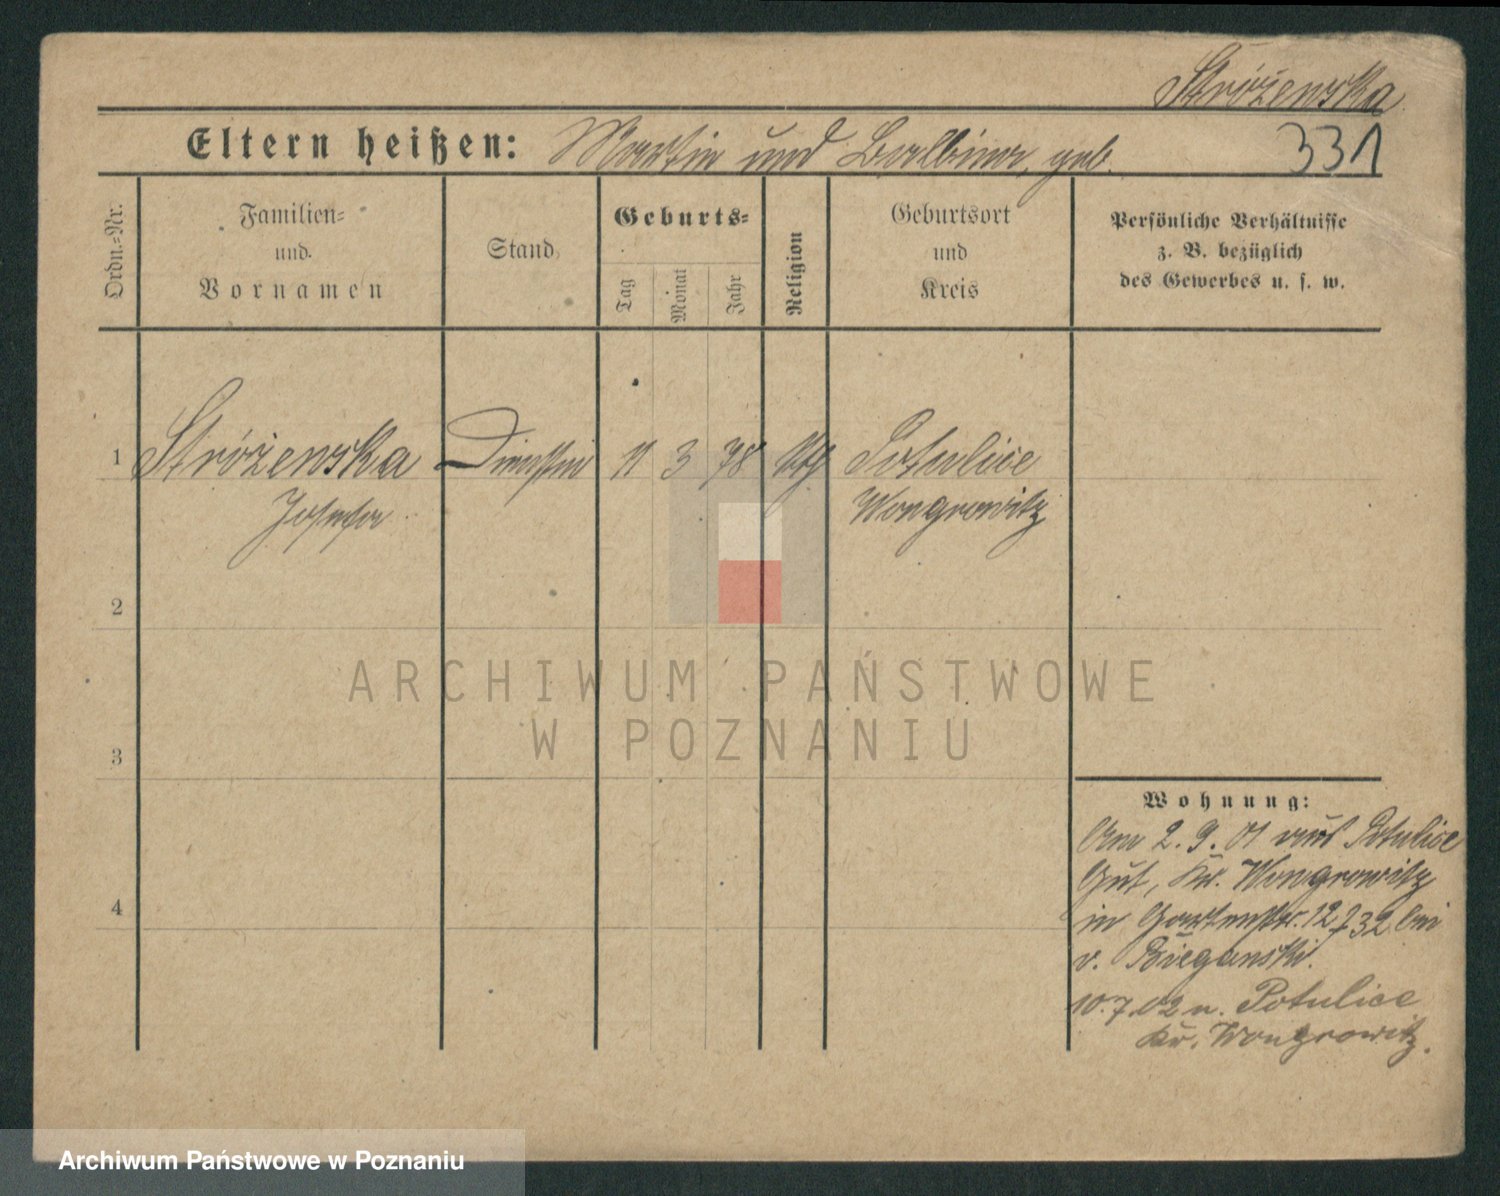 Stróżewska
Eltern heißen: Martin und Balbina, geb. 331
Ordn.=Nr.
Familien=
und
Vornamen
Stand
Geburts=
Tag
Monat
Jahr
Religion
Geburtsort
und
Kreis
Persönliche Verhältnisse
z. B. bezüglich
des Gewerbes u. s. w.
1 Stróżewska Dienstm 11 3 78 kth Potulice
Josefa Wongrowitz
2
3
4
ARCHIWUM PAŃSTWOWE
W POZNANIU
Wohnung:
Am 2. 9. 01 aus Potulice
Gut, Kr. Wongrowitz
in Gartenstr. 12 732 bei
v. Bieganski.
10.7.02 n. Potulice
Kr. Wongrowitz.
Archiwum Państwowe w Poznaniu